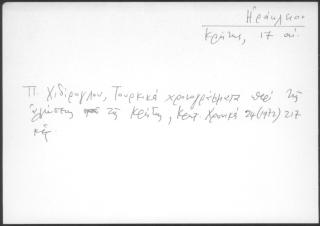 Ηράκλειο
Κρήτης, 17 αι.
Π. Χιδίρογλου, Τουρκικά χρονογράμματα περί της
αλώσεως της Κρήτης, Κρητ. Χρονικά 24 (1972) 217
κε.